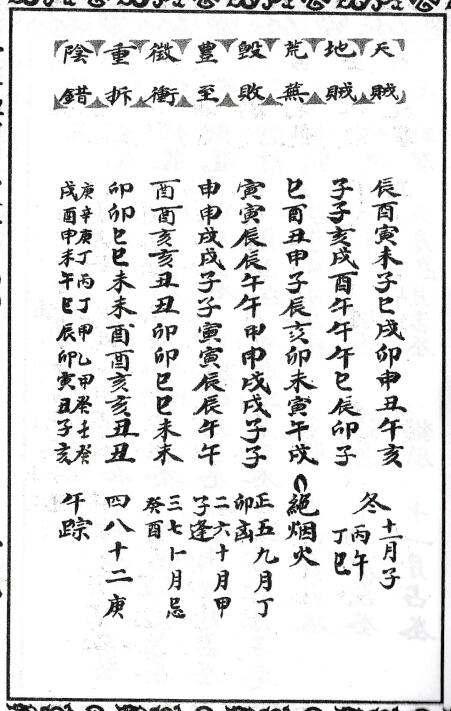 天賊 辰酉寅未子巳戌卯申丑午亥
地賊 子子亥戌酉午午午巳辰卯子
冬十一月子
丙午
丁巳
荒蕪 巳酉丑申子辰亥卯未寅午戌
絕烟火
毀敗 寅寅辰辰午午申申戌戌子子
正五九月丁
卯凶
豊至 申申戌戌子子寅寅辰辰午午
二六十月甲
子逢
徵衝 酉酉亥亥丑丑卯卯巳巳未未
三七十一月忌
癸酉
重拆 卯卯巳巳未未酉酉亥亥丑丑
四八十二庚
陰錯
庚辛庚丁丙丁甲乙甲癸壬癸
戌酉申未午巳辰卯寅丑子亥
午踪